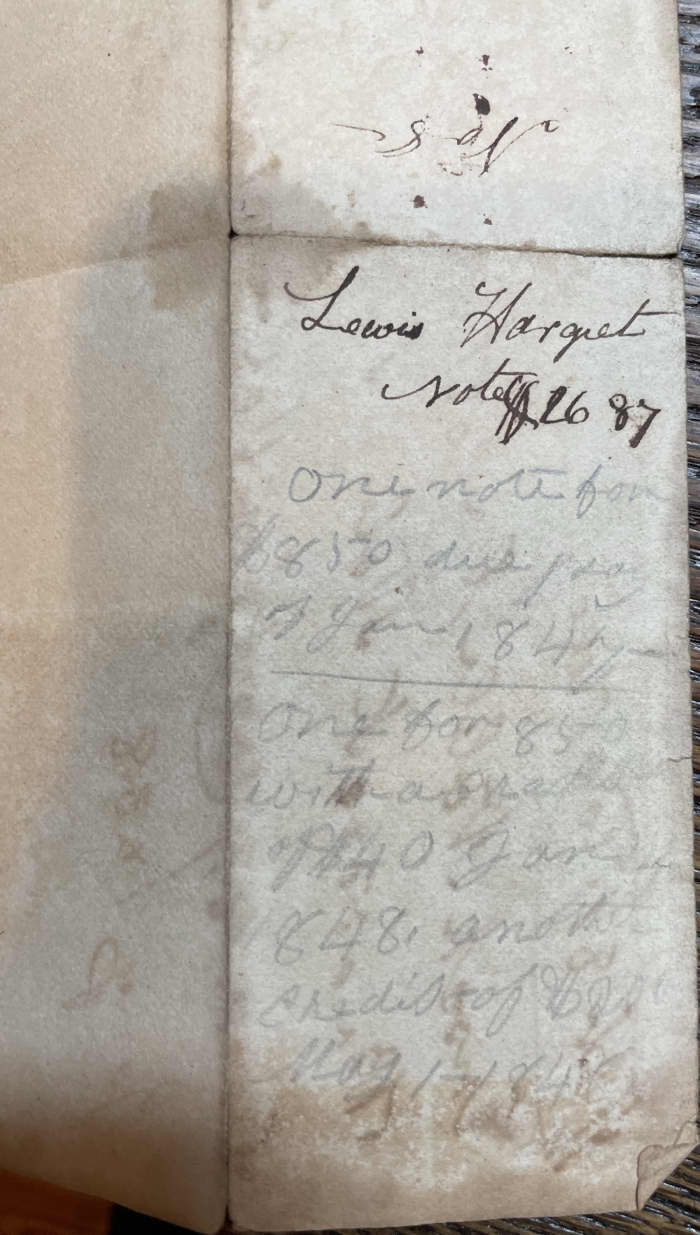 No 8
Lewis Harget
Note $26 87
One note for
$850, due 1 day
of Jan 1847
One for 850
with a
of $40 Jan
1848. another
credit of
May 1 - 1848